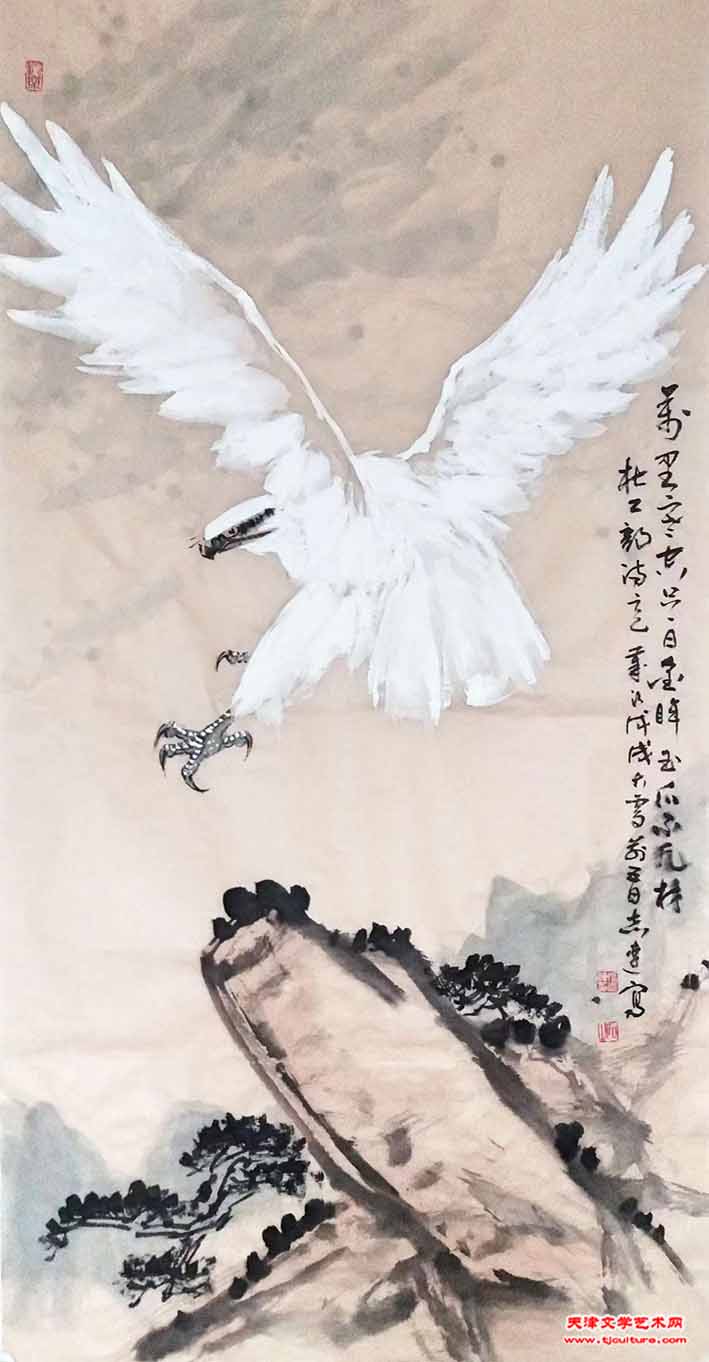 萬里寒空只一日金眸玉爪不凡材
杜工部詩意 歲次戊戌大雪前五日志寫
天津文学艺术网
www.tjculture.com